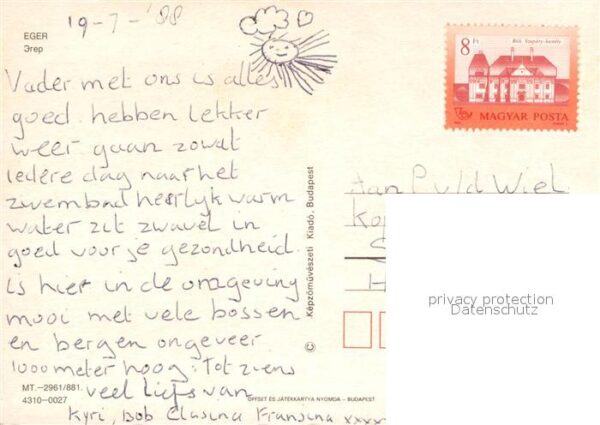 EGER
Эгер
19-7-'88
Vader met ons is alles
goed. hebben lekker
weer gaan zowat
iedere dag naar het
zwembad heerlijk warm
water zit zwavel in
goed voor je gezondheid.
is hier in de omgeving
mooi met vele bossen
en bergen ongeveer
1000 meter hoog. Tot ziens
veel liefs van
Kyri, Bob Clasina Fransina xxxx
MT.-2961/881.
4310-0027
OFFSET ÉS JÁTÉKKÁRTYA NYOMDA - BUDAPEST
© Képzőművészeti Kiadó, Budapest
8 Ft
MAGYAR POSTA
Aan P. v/d Wiel
privacy protection
Datenschutz